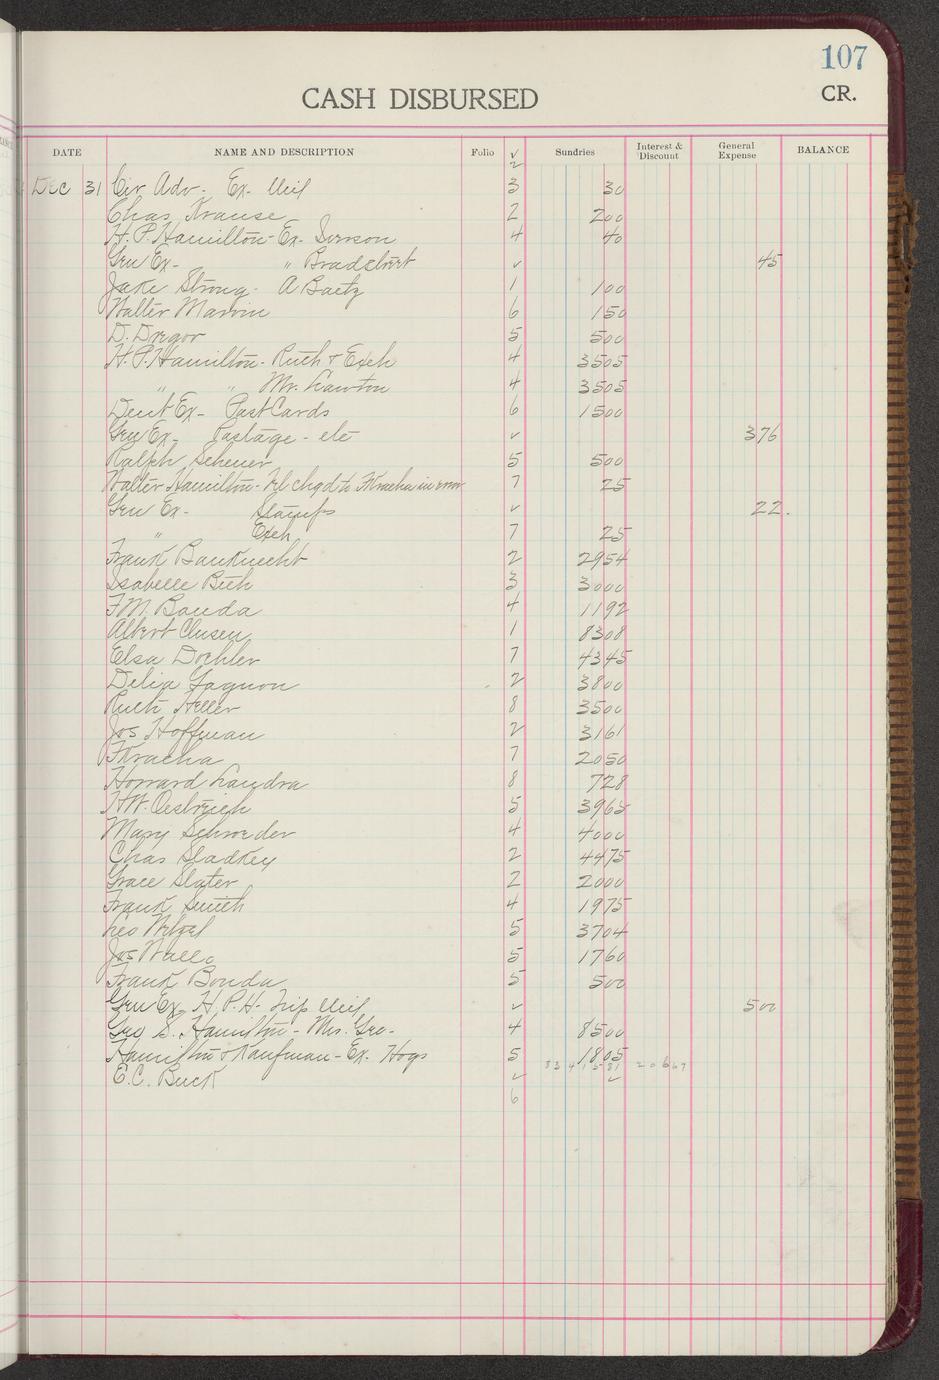 107
CASH DISBURSED
CR.
DATE NAME AND DESCRIPTION Folio √ Sundries Interest & Discount General Expense BALANCE
2
Dec 31 Cir Adv - Ex - 3 30
Chas Krause 2 200
H. P. Hamilton - Ex - 4 40
Gen Ex - " Bradstreet √ 45
Jake Strong - A Baetz 1 100
Walter Marvin 6 150
D. Dregor 5 500
H. P. Hamilton - Ruth & Exch 4 3505
" " Mr. Lawton 4 3505
Dent Ex - Post Cards 6 1500
Gen Ex - Postage - etc √ 376
Ralph Scheuer 5 500
Walter Hamilton - chgd to FKracha in error 7 25
Gen Ex - Stamps √ 22.
" Exch 7 25
Frank Bauknecht 2 2954
Isabelle Bich 3 3000
F.M. Bouda 4 1192
Albert Clusen 1 8308
Elsa Doehler 7 4345
Delia Gagnon 2 3800
Ruth Heller 8 3500
Jos Hoffman 2 3161
FKracha 7 2050
Howard Landra 8 728
H.W. Oestreich 5 3965
Mary Schroeder 4 4000
Chas Sladkey 2 4475
Grace Slater 2 2000
Frank Smith 4 1975
Leo Witzel 5 3704
Jos Wallo 5 1760
Frank Bouda 5 500
Gen Ex H. P. H - Trip √ 500
Geo S. Hamilton - Mrs. Geo - 4 8500
Hamilton & Kaufman - Ex. Hogs 5 1805
83 41581 20667
E.C. Buck √ √
6